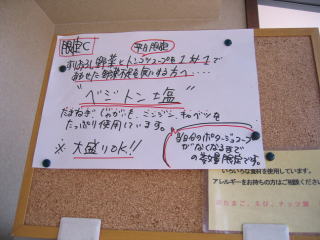 限定C 平日限定
すりおろし野菜とトンコツスープを1対1で
あわせた野菜不足を気にする方へ・・・・
"ベジトン塩"
たまねぎ、じゃがいも、ニンジン、キャベツを
たっぷり使用しています。
※ 大盛りOK!!
当日分のポタージュスープ
がなくなるまで
の数量限定です。
いろいろな食材を使用しています。
アレルギーをお持ちの方はご相談ください
えび、ナッツ類